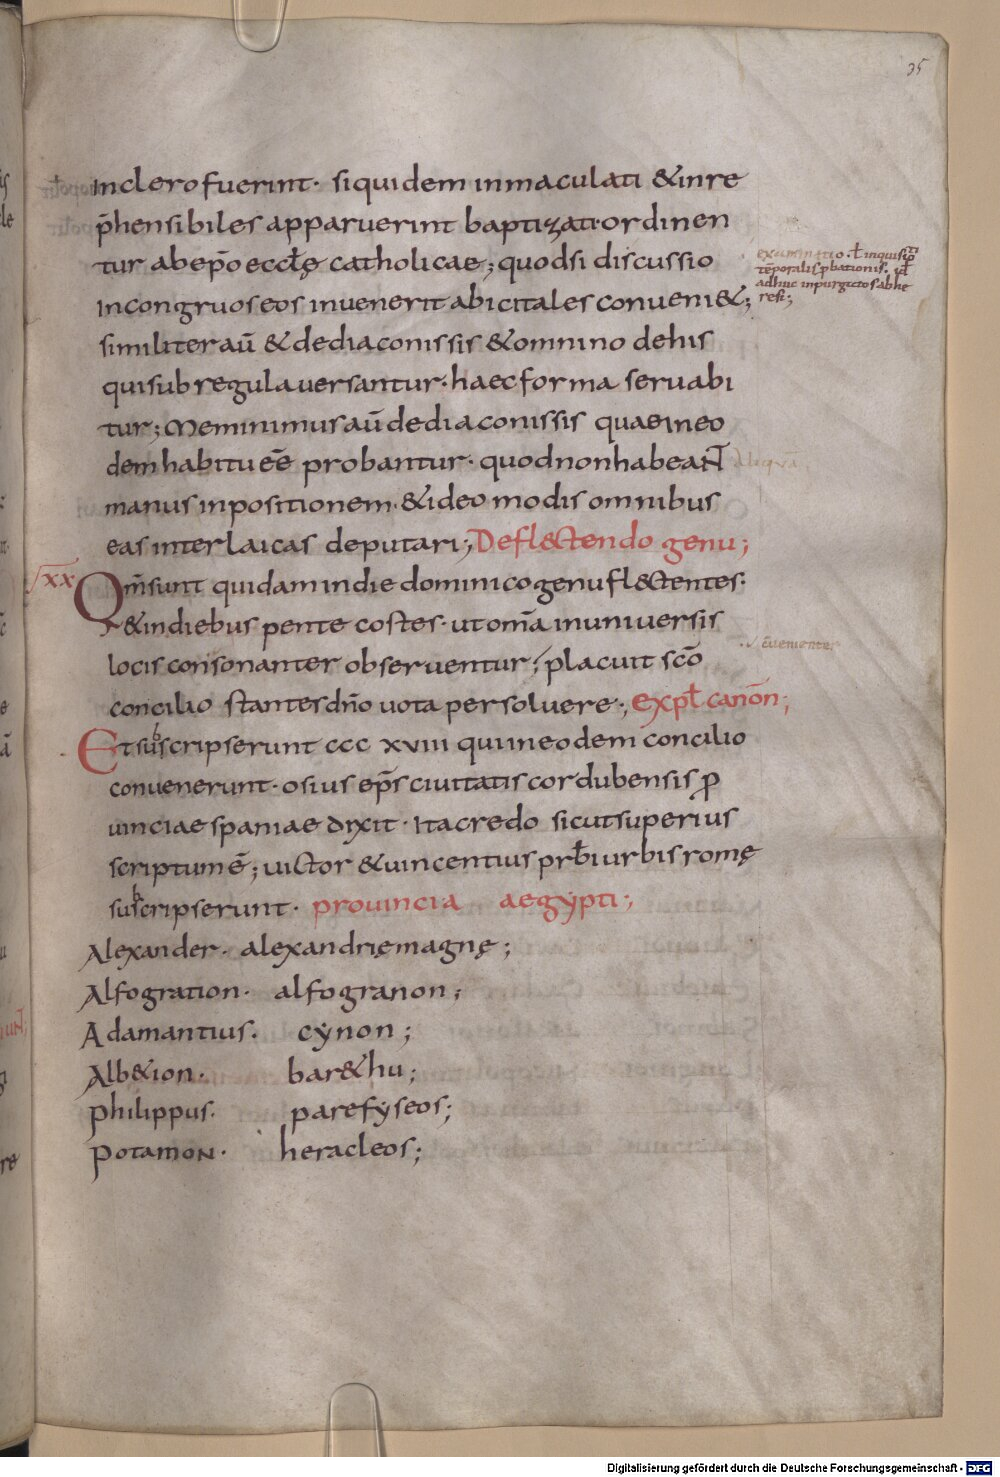 35
In clero fuerint · siquidem inmaculati & inre
p̄hensibiles apparuerint baptizati · ordinen
tur ab ep̄o eccłę catholicae ; quodsi discussio
incongruos eos inuenerit abici tales conueni& ;
similiter aū & de diaconissis & omnino de his
qui sub regula uersantur · haec forma seruabi
tur ; Meminimus aū de diaconissis quae in eo
dem habitu eē probantur · quod non habeant
manus inpositionem · & ideo modis omnibus
eas inter laicas deputari ; De fl&tendo genu ;
xx Qm̄ sunt quidam in die dominico genu fl&tentes ·
& in diebus pentecostes · ut om̄a in uniuersis
locis consonanter obseruentur ; placuit sc̄o
concilio stantes dn̄o uota persoluere · ; expł canōn ;
Et subscripserunt ccc xviii qui in eodem concilio
conuenerunt · osius ep̄s ciuitatis cordubensis ꝓ
uinciae spaniae dixit · Ita credo sicut superius
scriptum ē ; uictor & uincentius prb̄i urbis romę
subscripserunt · prouincia aegẏpti ;
Alexander · alexandrię magnę ;
Alfogration · alfogranon ;
Adamantius · cẏnon ;
Alb&ion · bar&hu ;
philippus · parefẏseos ;
potamon · heracleos ;
examinatio · ł inquisitio
tēporalis ꝓbationis · id
adhuc inpurgatos ab he
resi ;
Digitalisierung gefördert durch die Deutsche Forschungsgemeinschaft - DFG